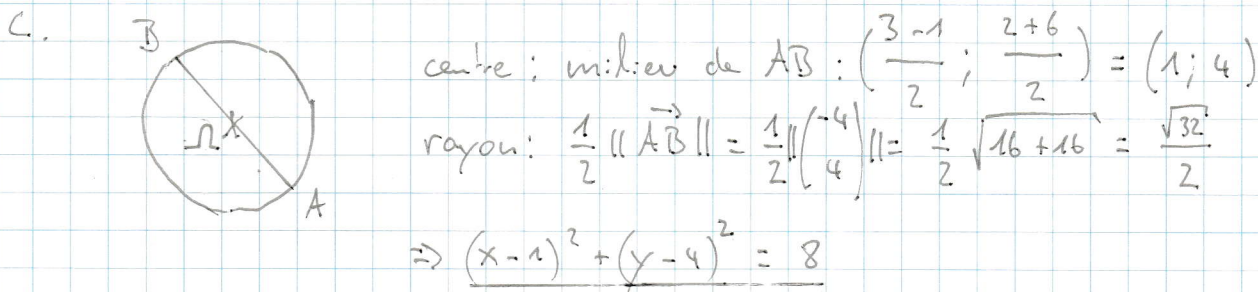 c.
B
Ω
A
centre : milieu de AB : ((3-1)/2 ; (2+6)/2) = (1; 4)
rayon: 1/2 ||AB⃗|| = 1/2 ||(-4 4)|| = 1/2 √(16+16) = √32/2
=> (x-1)² + (y-4)² = 8